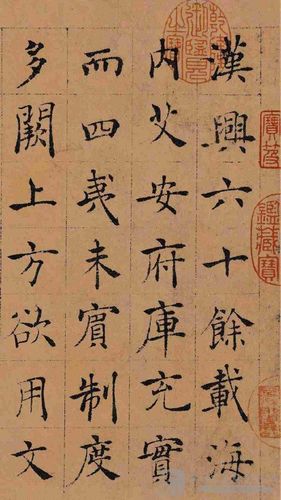 漢興六十餘載海
內艾安府庫充實
而四夷未賓制度
多闕上方欲用文
寶笈
鑑藏寶